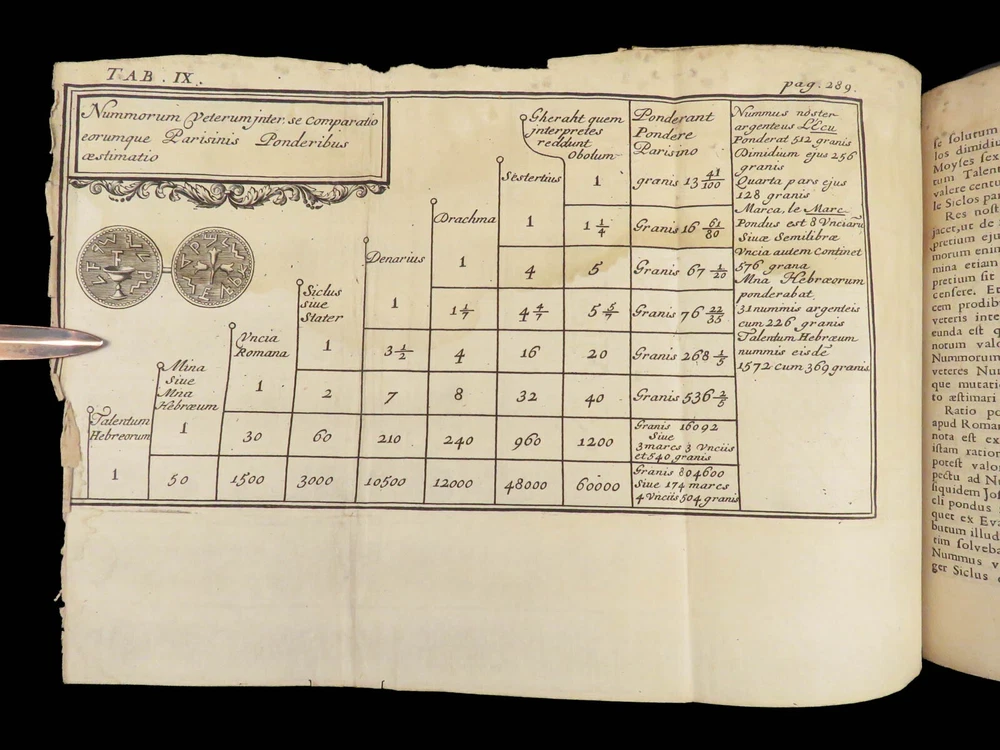 TAB. IX.
pag. 289.
Nummorum Veterum jnter. se Comparatio
eorumque Parisinis Ponderibus
æstimatio
Gheraht quem
jnterpretes
reddunt
Obolum
1
Ponderant
Pondere
Parisino
granis 13 41/100
Sestertius
1
1 1/4
Granis 16 61/80
Drachma
1
4
5
Granis 67 1/20
Denarius
1
1 1/7
4 4/7
5 5/7
Granis 76 22/35
Siclus
siue
Stater
1
3 1/2
4
16
20
Granis 268 1/5
Vncia
Romana
1
2
7
8
32
40
Granis 536 2/5
Mina
Siue
Mna
Hebræum
1
30
60
210
240
960
1200
Granis 16092
Siue
3 mares 3 Vnciis
et 540 granis
Talentum
Hebreorum
1
50
1500
3000
10500
12000
48000
60000
Granis 804600
Siue 174 mares
4 Vnciis 504 granis
Nummus nôster
argenteus L'Ecu
Ponderat 512 granis
Dimidium ejus 256
granis
Quarta pars ejus
128 granis
Marca, le Marc
Pondus est 8 Vnciarū
Siuæ Semilibræ
Vncia autem Continet
576 grana
Mna Hebræorum
ponderabat
31 nummis argenteis
cum 226 granis
Talentum Hebræum
nummis eisdē
1572 cum 369 granis
se solutum
los dimidiu
Moyses sex
tum Talen
valere centu
le Siclos par
Res nost
jacet, ut de
pretium eju
morum enim
mina etiam
pretium sit
censere. Et
cem prodibi
veteris inte
eunda est q
notum valo
Nummorum
veteres Nu
que mutati
to æstimari
Ratio po
apud Roman
nota est ex
istam ration
potest valo
pectu ad N
siquidem Jo
cli pondus
quet ex Eva
butum illud
tim solveba
Nummus v
ger Siclus